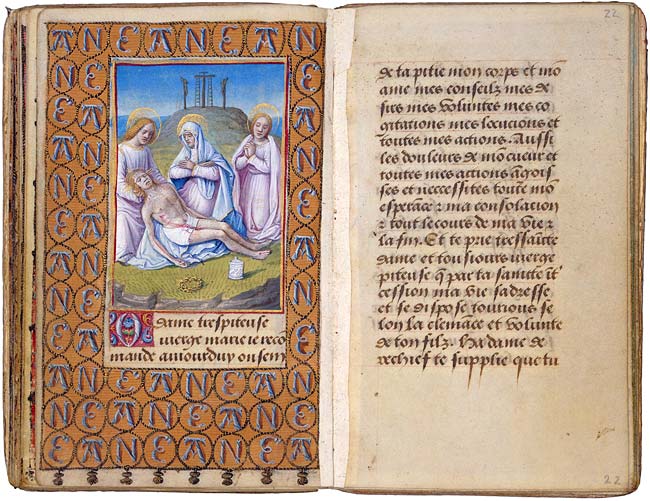 ANEANEAN
O dame trespiteuse
vierge marie ie reco͂
mande auiourduy ou sein
22
de ta pitie mon corps et mo͂
ame mes conseilz mes de
sirs mes voluntes mes co
gitations mes locucions et
toutes mes actions. Aussi
les douleurs de mo͂ cueur et
toutes mes actions a͂gois
ses et neccessites toute mo͂
espera͂ce & ma consolation
& tout le cours de ma vie &
la fin. Et te prie tressai͂cte
dame et tousiours vierge
piteuse q̃ par ta saincte i͂t
cession ma vie sadresse
et se dispose tousiours se
lon la cleme͂ce et volunte
de ton filz. Ha dame de
rechief te supplie que tu
22